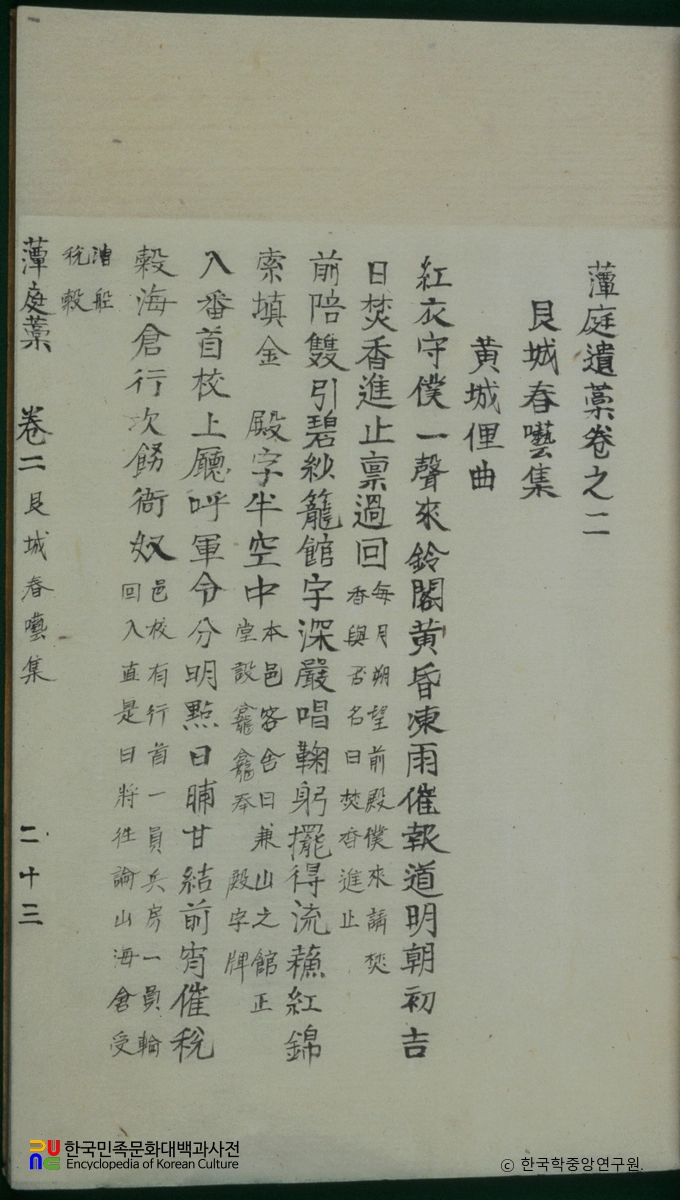 藫庭遺藁卷之二
艮城春囈集
黃城俚曲
紅衣守僕一聲來鈴閣黃昏凍雨催報道明朝初吉
日焚香進止禀過回每月朔望前殿僕來請焚香與否名曰焚香進止
前陪雙引碧紗籠館宇深嚴唱鞠躬擺得流蘓紅錦
索填金 殿字半空中本邑客舍曰兼山之館正堂設龕龕奉 殿字牌
入番首校上廳呼軍令分明點日晡甘結前宵催稅
穀海倉行次餝衙奴邑校有行首一員兵房一員輪回入直是日將徃論山海倉受
漕船稅穀
藫庭藁 卷二 艮城春囈集 二十三
한국민족문화대백과사전
Encyclopedia of Korean Culture
ⓒ 한국학중앙연구원